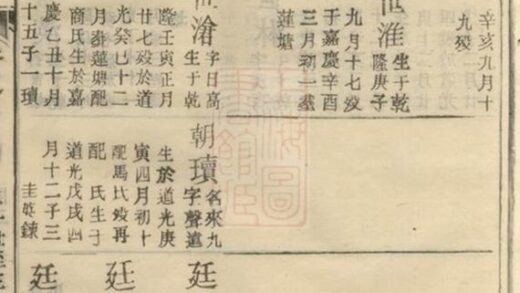 辛亥九月十
九殁
世淮
生于乾
隆庚子
九月十七殁
于嘉慶辛酉
三月初一塟
蓮塘
滄
字日高
生于乾
隆壬寅正月
廿七殁於道
光癸巳十二
月塟蓮塘配
商氏生於嘉
慶乙丑十月
十五子一瓚
朝瓚
名來九
字聲遠
生於道光庚
寅四月初十
配馬氏殁再
配 氏生于
道光戊戌四
月十二子三
圭英鍊
廷
廷
廷